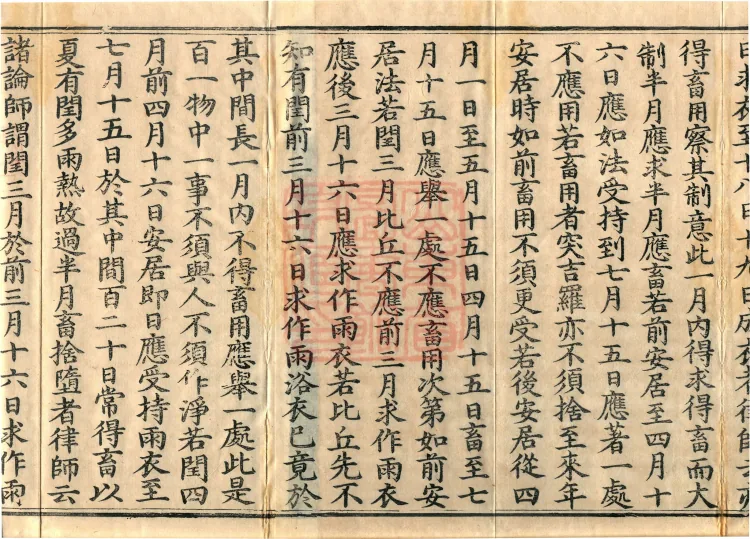 得畜用察其制意此一月內得求得畜而大
制半月應求半月應畜若前安居至四月十
六日應如法受持到七月十五日應著一處
不應用若畜用者突吉羅亦不須捨至來年
安居時如前畜用不須更受若後安居從四
月一日至五月十五日四月十五日畜至七
月十五日應舉一處不應畜用次第如前安
居法若閏三月比丘不應前三月求作雨衣
應後三月十六日應求作雨衣若比丘先不
知有閏前三月十六日求作雨浴衣已竟於
其中間長一月內不得畜用應舉一處此是
百一物中一事不須與人不須作淨若閏四
月前四月十六日安居即日應受持雨衣至
七月十五日於其中間百二十日常得畜以
夏有閏多雨熱故過半月畜捨墮者律師云
諸論師謂閏三月於前三月十六日求作雨